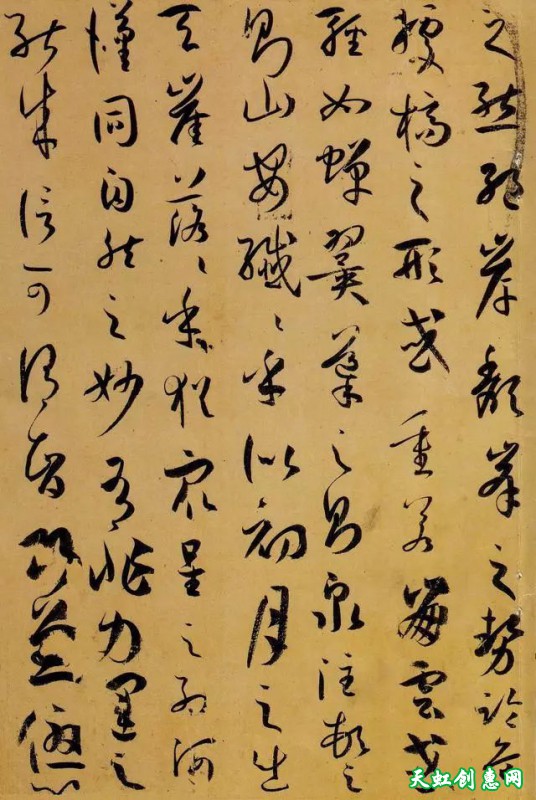 之態絕岸頹峯之勢臨危
據槁之形或重若崩雲或
輕如蟬翼導之則泉注頓之
則山安纖〻乎似初月之出
天崖落〻乎猶衆星之列河
漢同自然之妙有非力運之
能成信可謂智巧兼優心
天虹创惠网